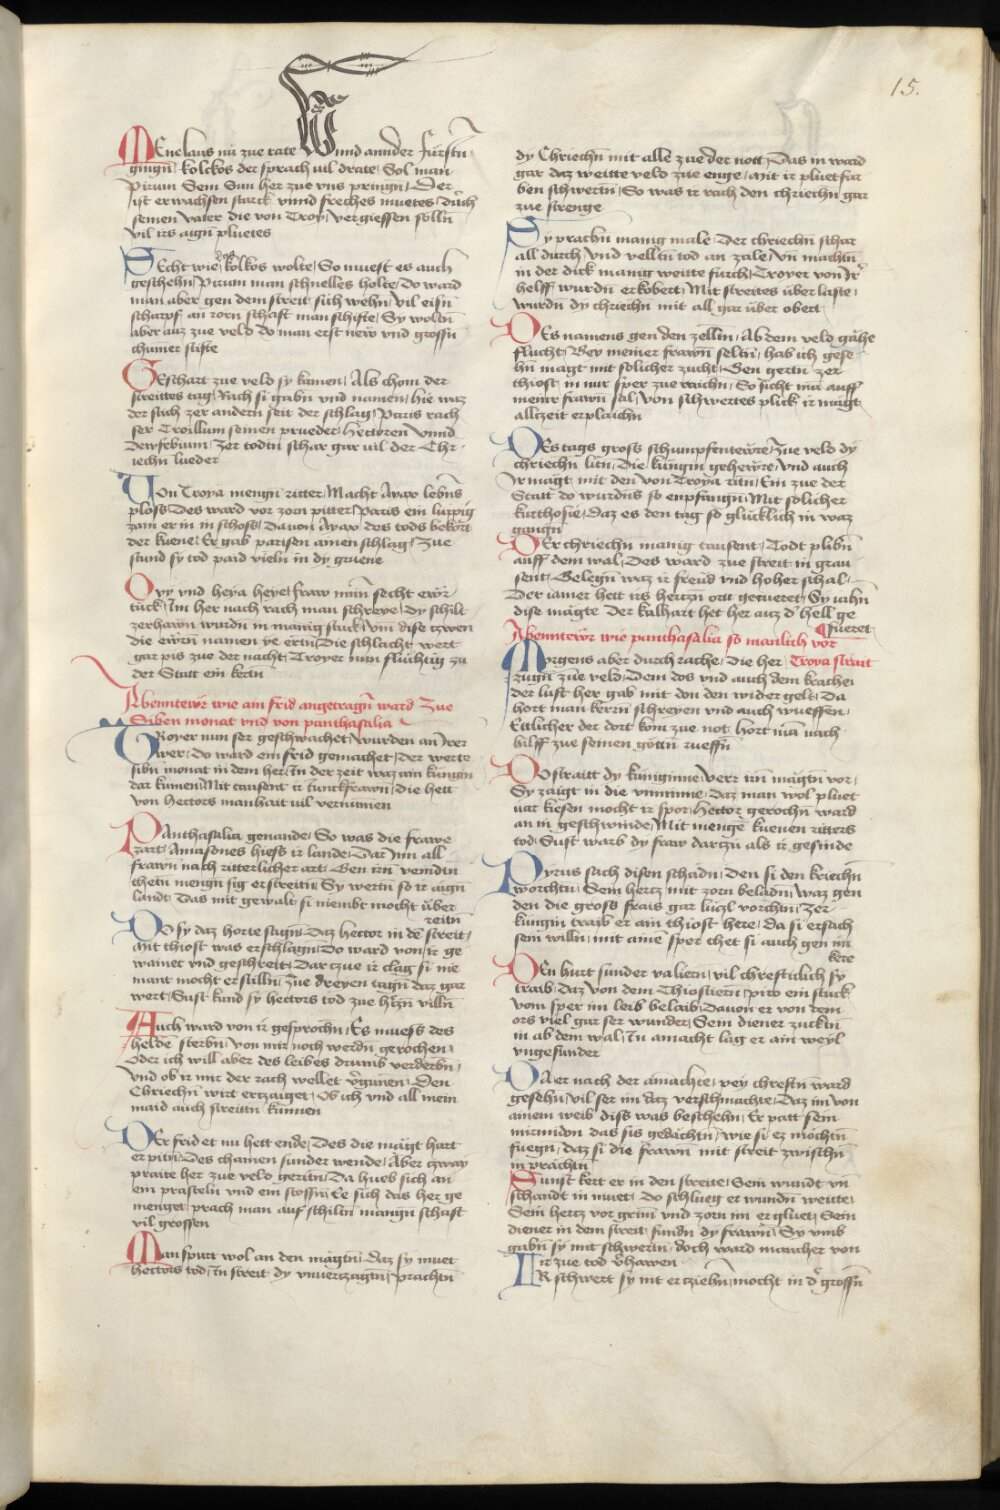 15.
MEnelaus nu zue rate / Vnnd annder fürstn
giengn / kolckos der sprach vil drate / Sol man
Pirum Sein Sun her zue vns pringn / Der
yst erwachsen starck vnnd freches muetes / durch
seinen vater die von Troy / vergiessen solln
vil irs aign pluetes
SEcht wie das kolkos wolte / So muest es auch
geschehn / Pirum man schnelles holte / Do ward
man aber gen dem streit sich wehn / vil eisn
scharpf an zorn schaft man schifte / Sy woltn
aber auz zue veld do man erst new vnd grossn
chumer stifte
GEschart zue veld sy kamen / Als chom der
streittes tag / Rach si gabn vnd namen / hie waz
der stich zer andern seit der schlag / Paris rach
ser Troillum seinen prueder / Hectoren vnnd
Deyfebium / Zer todtn schar gar vil der Chr-
iechn lueder
VOn Troya mengn ritter / Macht Ayax lebns
ploss / Des ward vor zorn pitter / Paris ein luppig
zain er in in schoss / Dauon Ayax des tods bekort
der kuene / Er gab parisen ainen schlag / Zue
stund sy tod paid vieln in dy gruene
OVy vnd heya heye / fraw minn secht ewr
tück / Im her nach rach man schreye / Dy schilt
zerhawn wurdn in manig stuck / vm dise tzwen
die ewrn namen ye ertn / Die schlacht wert
gar pis zue der nacht / Troyer nun fluchtig zu
der Statt ein kertn
Abenntewr wie ain frid angetragn ward Zue
Siben monat vnd von panthasalia
TRoyer nun ser geschwachet / wurden an irer
wer / do ward ein frid gemachet / Der werte
sibn monat in dem her / In der zeit waz ain küngin
dar kumen / Mit tausent ir iunckfrawn / die hett
von Hectors manhait vil vernumen
PAnthasalia genande / So was die frawe
zart / Amasones hiess ir lande / Dar inn all
frawn nach ritterlicher art / Gen irn veindtn
chetn mengn sig erstreitn / Sy wertn so ir aign
lande Das mit gewalt si niembt mocht über
reitn
DO sy daz horte sagn / Daz hector in dem streit /
Mit thiost was erschlagn / Do ward von ir ge
wainet vnd geschreit / Dar tzue ir clag si nie
mant mocht erstilln / Zue dreyen tagn daz gar
wert / Sust kund sy hectors tod zue hertzn villn
AUch ward von ir gesprochn / Es muess des
helde sterbn / von mir noch werdn gerochen /
Oder ich will aber des leibes drumb verderbn /
Vnd ob ir mir der rach wellet vergunnen / Den
Chriechn wirt ertzaiget / Ob ich vnd all mein
maid auch streittn kunnen
DEr frid et nu hett ende / Des die mägt hart
erpitn / Des chamen sunder wende / Aber tzway
praite her zue veld geritn / Da hueb sich an
ein prasteln vnd ein stossn / Ee sich das her ge
menget / prach man auf schiltn mangn schaft
vil grossen
MAn spurt wol an den mägtn / Daz sy muet
hectors tod / In streit dy vnuertzagtn / prachtn
dy Chriechn mit alle zue der nott / Das in ward
gar daz weitte veld zue enge / Mit ir pluet far
ben schwertn / So was ir rach den chriechn gar
zue strenge
SY prachn manig male / Der chriechn schar
all durch / Vnd velltn tod an zale / Vn machtn
in der dick manig weitte furch / Troyer von ir
helff wurdn erkobert / Mit streittes über laste /
wurdn dy chriechn mit all gar über obert
DEs namens gen den zelltn / Ab dem veld gähe
flucht / Bey meiner frawn seltn / hab ich gese
hn magt mit solicher zucht / Gen gertn zer
thiost in nur sper zue raichn / So sicht man auff
meinr frawn sal / Von schwertes plick ir magt
allczeit erplaichn
DEs tags gross schumpfentewre / Zue veld dy
chriechn litn / Die küngin gehewre / Vnd auch
Ir magt mit den von Troya ritn / Ein zue der
Statt do wurdns so enpfangn / Mit solicher
kurthosie / daz es den tag so glücklich in waz
gangn
DEr chriechn manig tausent / Todt plibn
auff dem wal / Des ward zue streit in grau
sent / Gelegn waz ir freud vnd hoher schal /
Der iamer hett irs hertzn ort gerueret / Sy iahn
dise mägte Der kalhart het her auz der hell ge
fueret
Abenntewr wie panthasalia so manlich vor
Troya streit
MOrgens aber durch rache / Die her
zugn zue veld / Dem dos vnd auch dem krache /
der lust her gab mit don den wider gelt / Da
hort man kerrn schreyen vnd auch wueffen /
Ettlicher der dort kom zue not hort man nach
hilff zue seinen göttn rueffn
DO straitt dy küniginne / verr irn mägtn vor /
Sy zaigt in die vnminne / daz man wol pluet
var kiesen mocht ir spor / Hector gerochn ward
an in geschwinde / Mit menge kuenen ritters
tod / Sust warb dy fraw dartzu als ir gesinde
PYrus sach disen schadn / Den si den kriechn
worchtn / Sein hertz mit zorn beladn / waz gen
den die gross frais gar lützl vorchtn / Zer
küngin traib er ain thiost here / da si ersach
sein willn / mit aine sper chet si auch gen im
kere
DEn hurt sunder valiern / vil chrefticlich sy
traib / daz von dem Thiostiern / pirro ein stuck
vom sper im leib belaib / Dauon er von dem
ors viel gar ser wunder / Sein diener zucktn
in ab dem wal / In amacht lag er ain weyl
vngesunder
DA er nach der amachte / bey chreftn ward
gesehn / vil ser im daz verschmachte / Daz im von
ainem weib diss was beschehn / Er patt sein
mirmidon das sis gedächtn / wie si ez möchtn
fuegn / daz si die frawn mit streit zwischn
in prächtn
SUnst kert er in den streite / Sein wundt vn
schandt in muet / Do schlueg er wundn weitte /
Sein hertz vor grim vnd zorn im er gluet / Sein
diener in dem streit / fundn dy frawn / Sy vmb
gabn sy mit schwertn / doch ward mancher von
ir zue tod verhawen
IR schwert sy nit ertziehn / mocht in der grossn